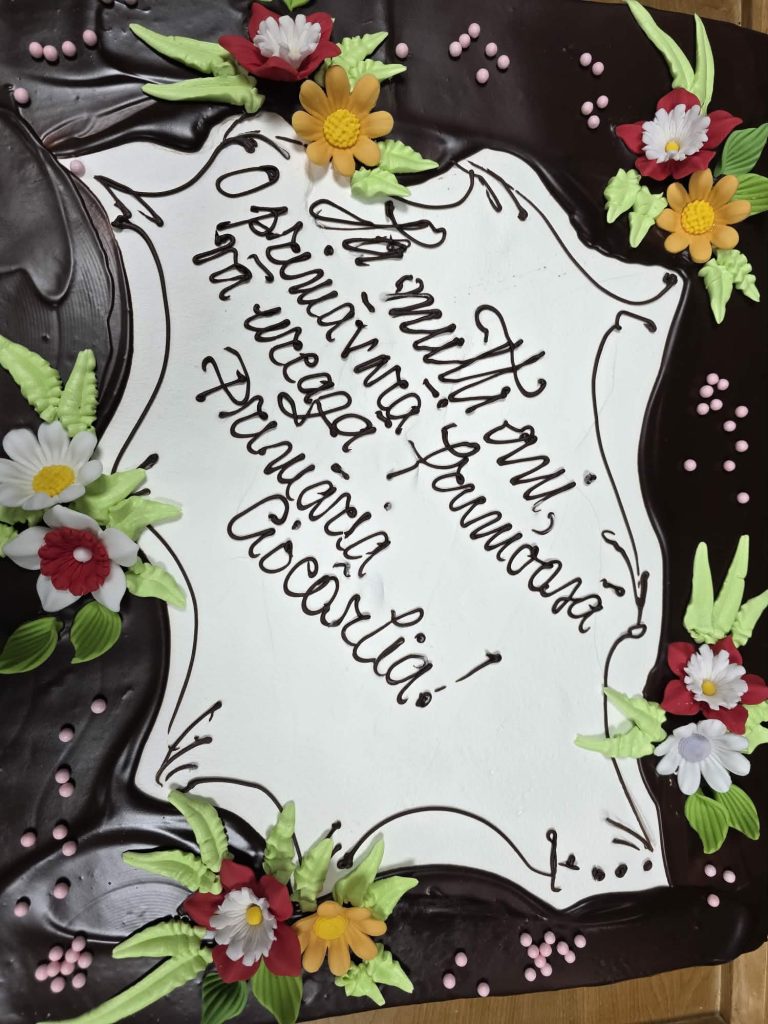 La multi ani,
O primăvară frumoasă
vă ureaza
Primăria
Ciocârlia!